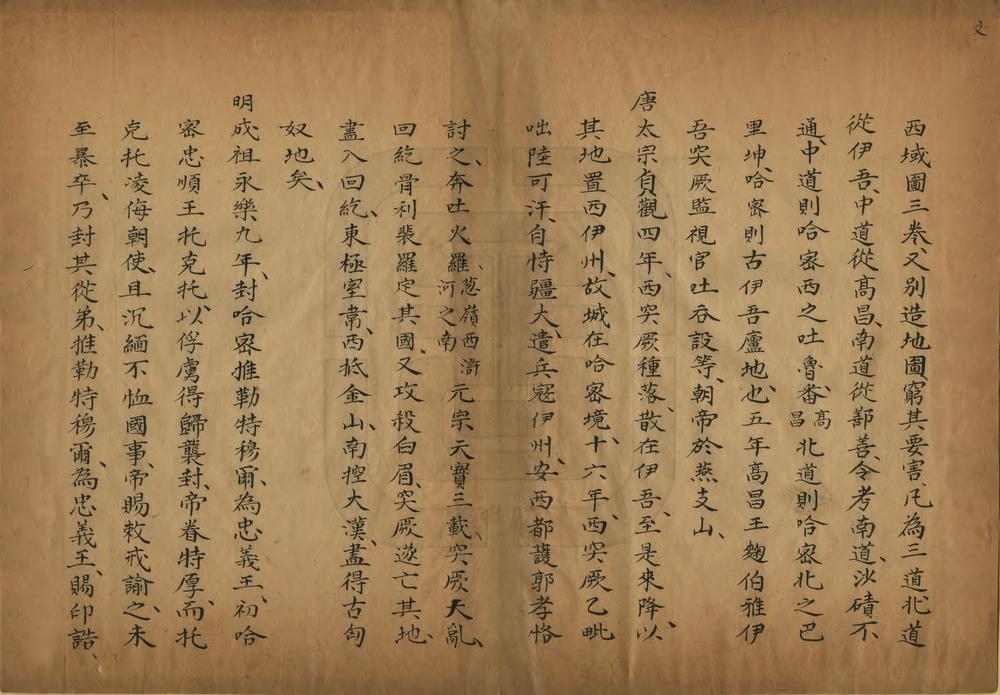 西域圖三巻、又別造地圖窮其要害、凡為三道、北道
從伊吾、中道從髙昌、南道從鄯善、令考南道、沙磧不
通、中道則哈密西之吐魯番、髙昌北道則哈密北之巴
里坤、哈密則古伊吾廬地也、五年髙昌王麴伯雅伊
吾突厥監視官吐吞設等、朝帝於燕支山、
唐太宗貞觀四年、西突厥種落、散在伊吾、至是來降、以
其地置西伊州、故城在哈密境、十六年、西突厥乙毗
咄陸可汗、自恃疆大、遣兵冦伊州、安西都護郭孝恪
討之、奔吐火羅、葱嶺西滸河之南元宗天寶三載、突厥大亂、
回紇骨利裴羅定其國、又攻殺白眉、突厥遂亡其地、
盡入回紇、東極室韋、西抵金山、南控大漢、盡得古匈
奴地矣、
明成祖永樂九年、封哈密推勒特穆爾、為忠義王、初哈
密忠順王托克托、以俘虜得歸襲封、帝眷特厚、而托
克托凌侮朝使、且沉緬不恤國事、帝賜敕戒諭之、未
至暴卒、乃封其從弟、推勒特穆爾、為忠義王、賜印誥、